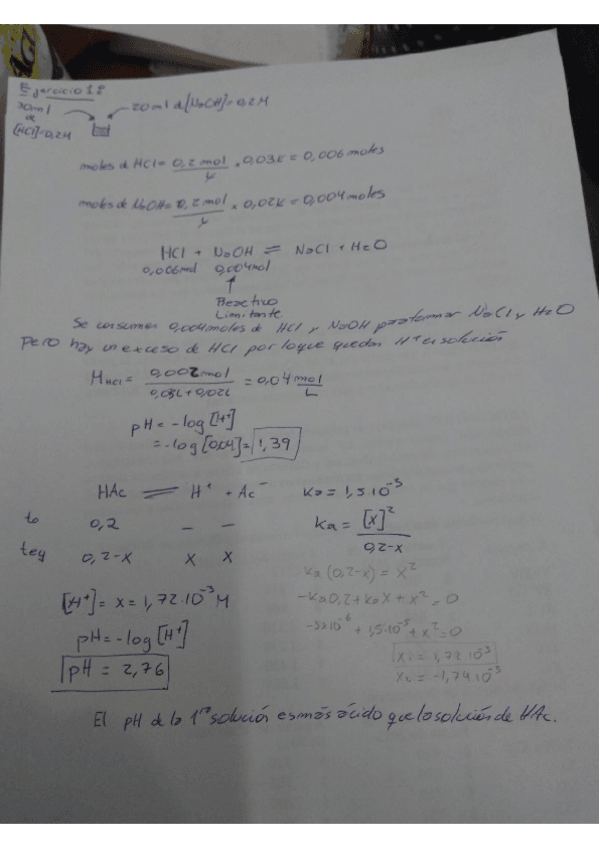 Ejercicio 12
30ml de [HCl]=0,2M
20ml d[NaOH]=0,2M
moles de HCl = 0,2 mol/L × 0,03L = 0,006 moles
moles de NaOH = 0,2 mol/L × 0,02L = 0,004 moles
HCl + NaOH ⇌ NaCl + H2O
0,006mol 0,004mol
↑
Reactivo
Limitante
Se consumen 0,004 moles de HCl y NaOH para formar NaCl y H2O
pero hay un exceso de HCl por lo que quedan H+ en solución
M HCl = 0,002mol / 0,03L+0,02L = 0,04 mol/L
pH = -log [H+]
= -log [0,04] = 1,39
HAc ⇌ H+ + Ac-
to 0,2 - -
teq 0,2-x x x
[H+] = x = 1,72·10^-3 M
pH = -log [H+]
pH = 2,76
Ka = 1,5·10^-5
Ka = [x]^2 / 0,2-x
Ka (0,2-x) = x^2
-Ka0,2 + Kax + x^2 = 0
+ 1,5·10^-5 + x^2 = 0
x1 = 1,72·10^-3
x2 = -1,74·10^-3
El pH de la 1ra solución es más ácido que la solución de HAc.